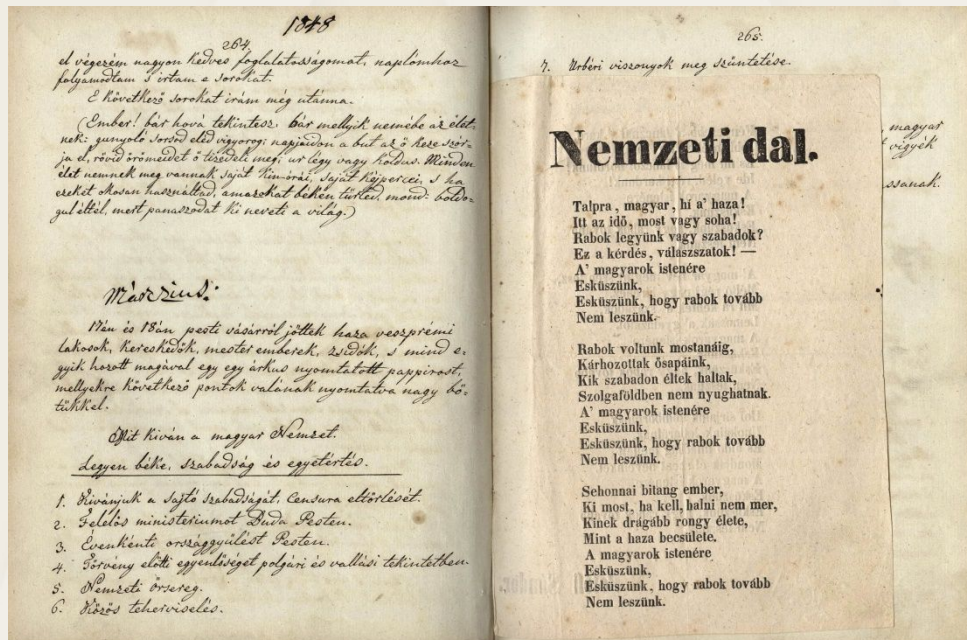 1848
264.
el végezém nagyon kedves foglalatosságomat, naplómhoz
folyamodtam s irtam e sorokat.
E következő sorokat irám még utánna.
(Ember! bár hová tekintesz, bár mellyik nemébe az élet-
nek: gunyoló sorsod eléd vigyorog; napjaidon a but az ő keze szór-
ja el, rövid örömeidet ő tizedeli meg; ur légy vagy koldus. Minden
élet nemnek meg vannak saját kin-órái, saját kéjperczei, s ha
ezeket okosan használtad, amazokat béken türted, mond: boldo-
gul éltél, mert panaszodat ki neveti a világ.)
Marczius.
17én és 18án pesti vásárról jöttek haza veszprémi
lakosok, kereskedők, mester emberek, zsidók, s mind e-
gyik hozott magával egy egy árkus nyomtatott pappirost,
mellyekre következő pontok valának nyomtatva nagy bő-
tükkel.
Mit kiván a magyar Nemzet.
Legyen béke, szabadság és egyetértés.
1. Kivánjuk a sajtó szabadságát. Censura eltörlését.
2. Felelős ministeriumot Buda Pesten.
3. Évenkénti országgyülést Pesten.
4. Törvény előtti egyenlőséget polgári és vallási tekintetben.
5. Nemzeti őrsereg.
6. Közös teherviselés.
265.
7. Urbéri viszonyok meg szüntetése.
magyar
vigyék
ssanak.
Nemzeti dal.
Talpra, magyar, hí a' haza!
Itt az idő, most vagy soha!
Rabok legyünk vagy szabadok?
Ez a kérdés, válaszszatok! —
A' magyarok istenére
Esküszünk,
Esküszünk, hogy rabok tovább
Nem leszünk.
Rabok voltunk mostanáig,
Kárhozottak ősapáink,
Kik szabadon éltek haltak,
Szolgaföldben nem nyughatnak.
A' magyarok istenére
Esküszünk,
Esküszünk, hogy rabok tovább
Nem leszünk.
Sehonnai bitang ember,
Ki most, ha kell, halni nem mer,
Kinek drágább rongy élete,
Mint a haza becsülete.
A magyarok istenére
Esküszünk,
Esküszünk, hogy rabok tovább
Nem leszünk.